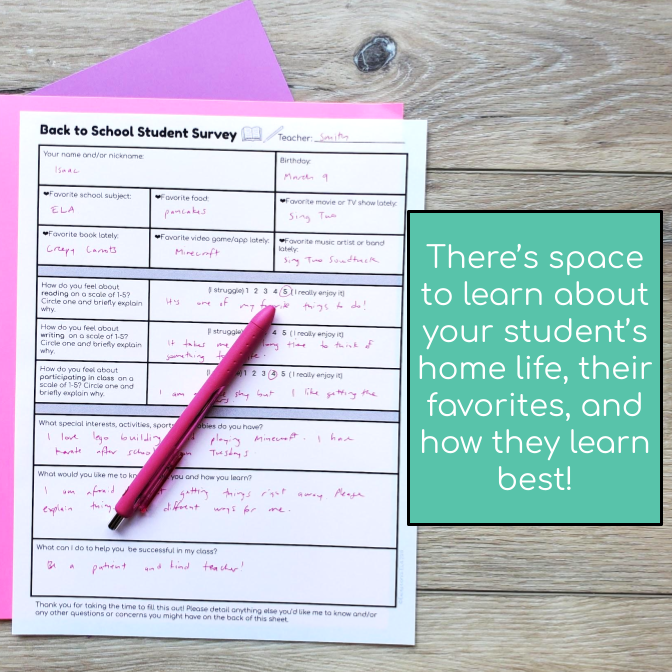 Back to School Student Survey
Teacher: Smith
Your name and/or nickname:
Isaac
Birthday:
March 9
❤Favorite school subject:
ELA
❤Favorite food:
pancakes
❤Favorite movie or TV show lately:
Sing Two
❤Favorite book lately:
Creepy Carrots
❤Favorite video game/app lately:
Minecraft
❤Favorite music artist or band
lately:
Sing Two Soundtrack
How do you feel about
reading on a scale of 1-5?
Circle one and briefly explain
why.
(I struggle) 1 2 3 4 5 (I really enjoy it)
It's one of my favorite things to do!
How do you feel about
writing on a scale of 1-5?
Circle one and briefly explain
why.
(I struggle) 4 5 (I really enjoy it)
It takes me long time to think of
something
How do you feel about
participating in class on a
scale of 1-5? Circle one and
briefly explain why.
(I struggle) 2 3 4 5 (I really enjoy it)
I am shy but I like getting the
What special interests, activities, sports do you have?
I love lego building playing Minecraft. I have
karate after school Tuesdays.
What would you like me to you and how you learn?
I am afraid getting things right away. Please
explain different ways for me.
What can I do to help you be successful in my class?
Be a patient and kind teacher!
Thank you for taking the time to fill this out! Please detail anything else you'd like me to know and/or
any other questions or concerns you might have on the back of this sheet.
There's space
to learn about
your student's
home life, their
favorites, and
how they learn
best!